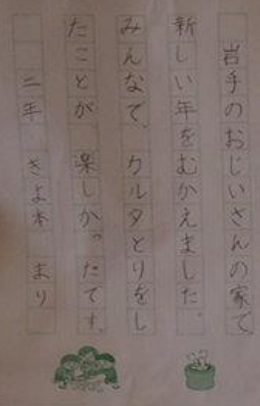 岩手のおじいさんの家で
新しい年をむかえました。
みんなで、カルタとりをし
たことが 楽しかったです。
二年 きよ本 まり